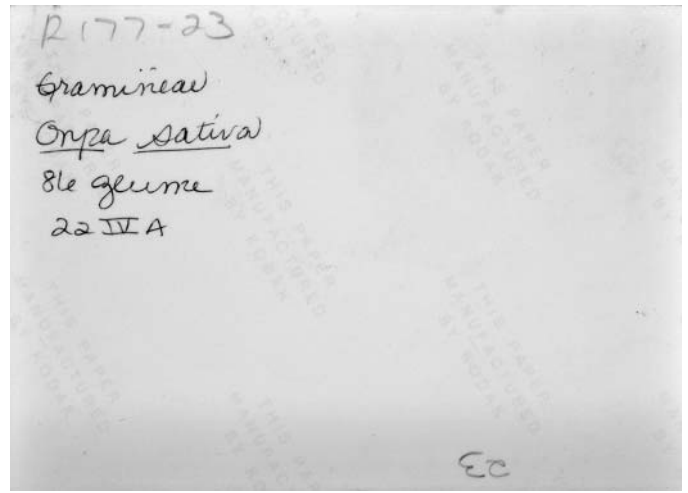 R177-23
Gramineae
Oryza sativa
glume
22 IV A
23
THIS PAPER
MANUFACTURED
BY KODAK